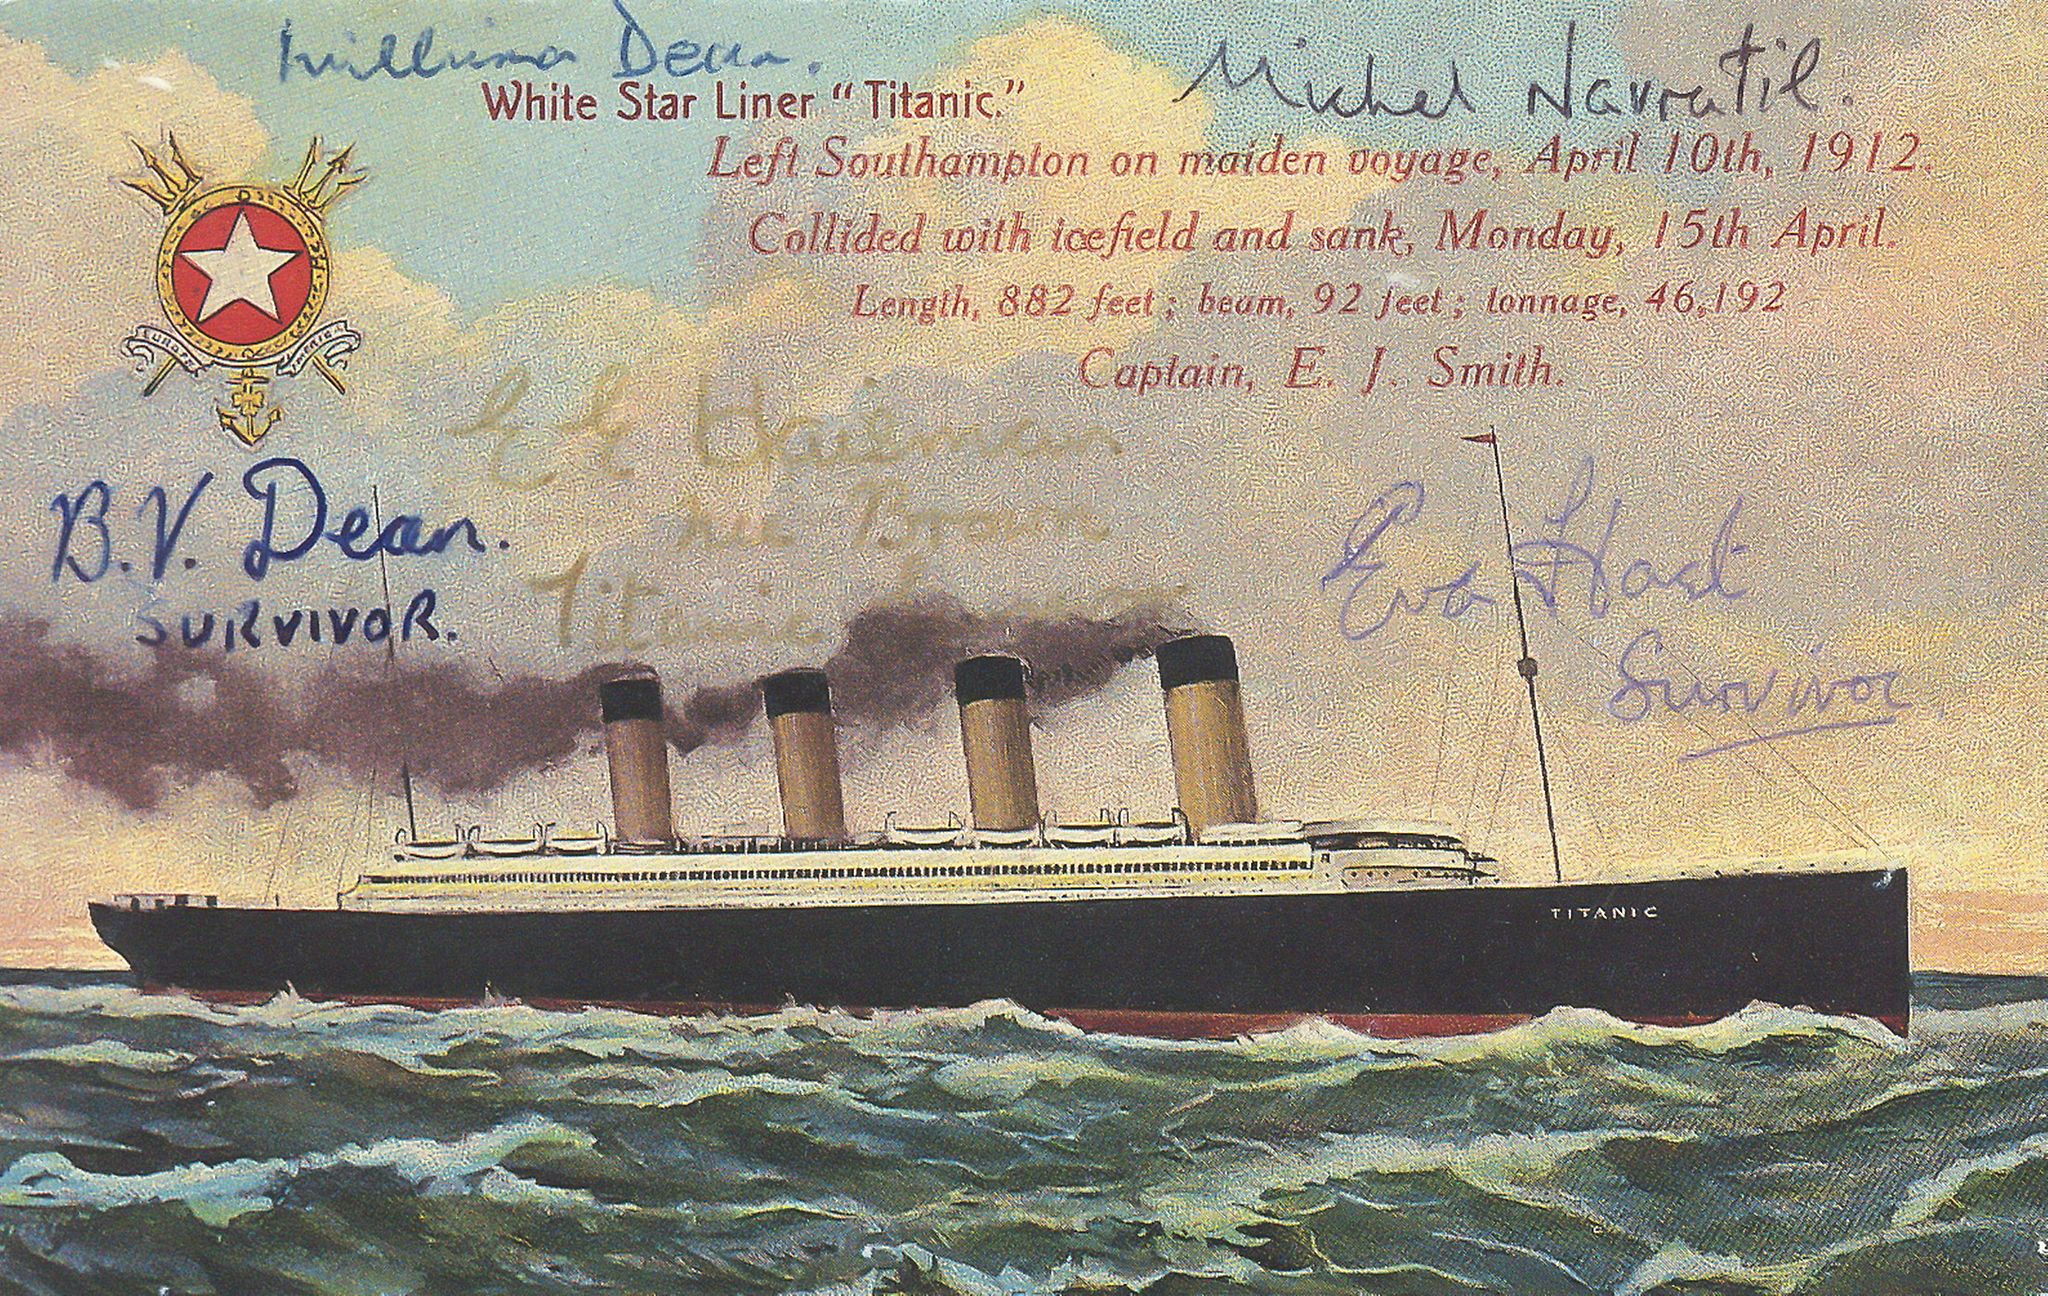 Millvina Dean.
Michel Navratil.
White Star Liner "Titanic."
Left Southampton on maiden voyage, April 10th, 1912.
Collided with icefield and sank, Monday, 15th April.
Length, 882 feet; beam, 92 feet; tonnage, 46,192
Captain, E. J. Smith.
EUROPE AMERICA
E E Haisman
née Brown
Titanic Survivor
B.V. Dean.
SURVIVOR.
Eva Hart
Survivor.
TITANIC